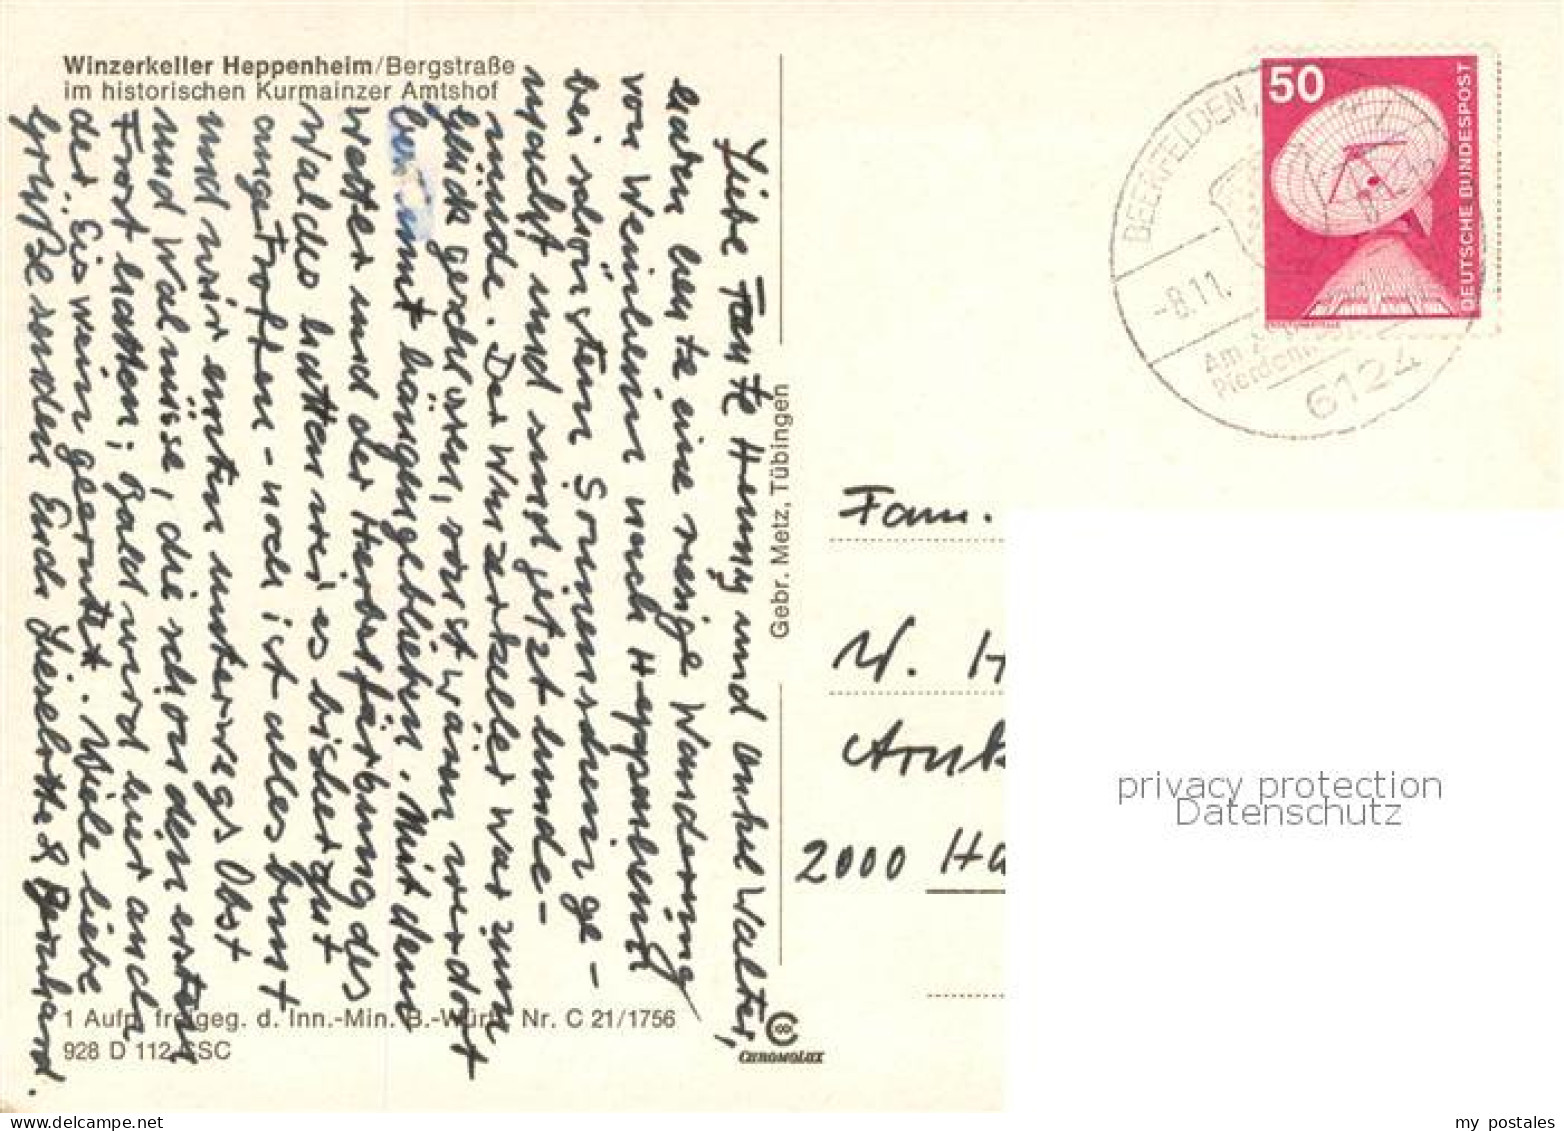 Winzerkeller Heppenheim/Bergstraße
im historischen Kurmainzer Amtshof
Liebe Tante Henny und Onkel Walter,
haben heute eine riesige Wanderung
von Weinheim nach Heppenheim
bei schönstem Sonnenschein ge-
macht und sind jetzt hunde-
müde. Der Winzerkeller war zum
Glück geschlossen, sonst wären wir dort
bestimmt hängengeblieben. Mit dem
Wetter und der Herbstfärbung des
Waldes hatten wir es bisher gut
angetroffen - noch ist alles bunt
und wir ernten unterwegs Obst
und Walnüsse, die schon den ersten
Frost hatten; bald wird hier auch
der Eiswein geerntet. Viele liebe
Grüße senden Euch Lieselotte & Gerhard.
1 Aufn. freigeg. d. Inn.-Min. B.-Württ. Nr. C 21/1756
928 D 112 CSC
Gebr. Metz, Tübingen
CHROMOLUX
50
DEUTSCHE BUNDESPOST
BEERFELDEN,
-8.11.
Am
6124
Fam.
W. H
2000 Ha
privacy protection
Datenschutz
my postales